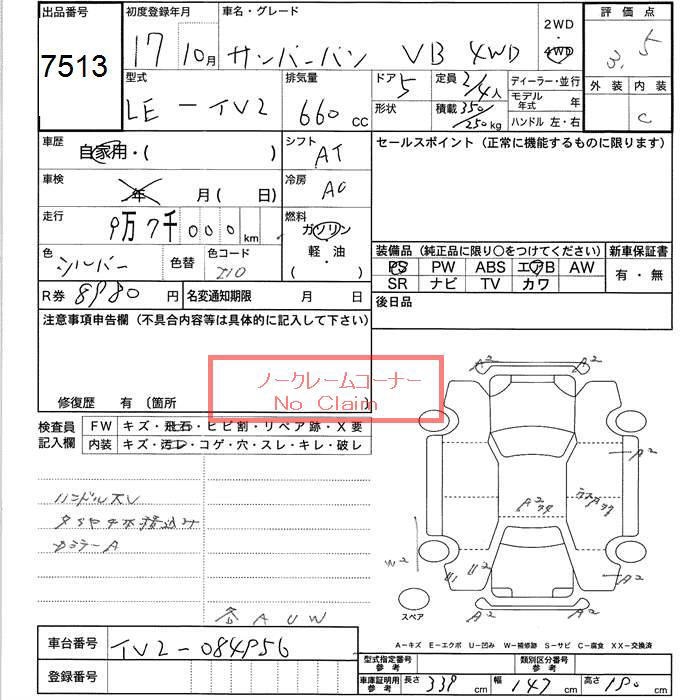 出品番号 初度登録年月 車名・グレード 2WD・4WD 評価点
7513 17 10月 サンバーバン VB 4WD 3.5
型式 排気量 ドア 5 定員 2/4人 ディーラー・並行 外装 内装
LE-TV2 660 cc 形状 積載 350/250kg モデル年式 年 C
ハンドル 左・右
車歴 自家用・( ) シフト AT セールスポイント (正常に機能するものに限ります)
車検 年 月 ( 日) 冷房 AC
走行 9万7千000km 燃料 ガソリン 軽・油 ( )
色 シルバー 色替 色コード 装備品 (純正品に限り〇をつけてください) 新車保証書
PS PW ABS エアB AW 有・無
SR ナビ TV カワ
R券 8980円 名変通知期限 月 日 後日品
注意事項申告欄 (不具合内容等は具体的に記入して下さい)
ノークレームコーナー
No Claim
修復歴 有 (箇所 )
検査員記入欄 FW キズ・飛石・ヒビ割・リペア跡・X要
内装 キズ・汚レ・コゲ・穴・スレ・キレ・破レ
A2 A2
A2
ハンドルスレ
タイヤ4本積込み
ミラーA
W2 U2 A2
スペア
A2 A2
AUW
A-キズ E-エクボ U-凹み W-補修跡 S-サビ C-腐食 XX-交換済
車台番号 TV2-084956
登録番号
型式指定番号 参考 類別区分番号 参考
車庫証明用 参考 長さ 339cm 幅 147cm 高さ 190cm